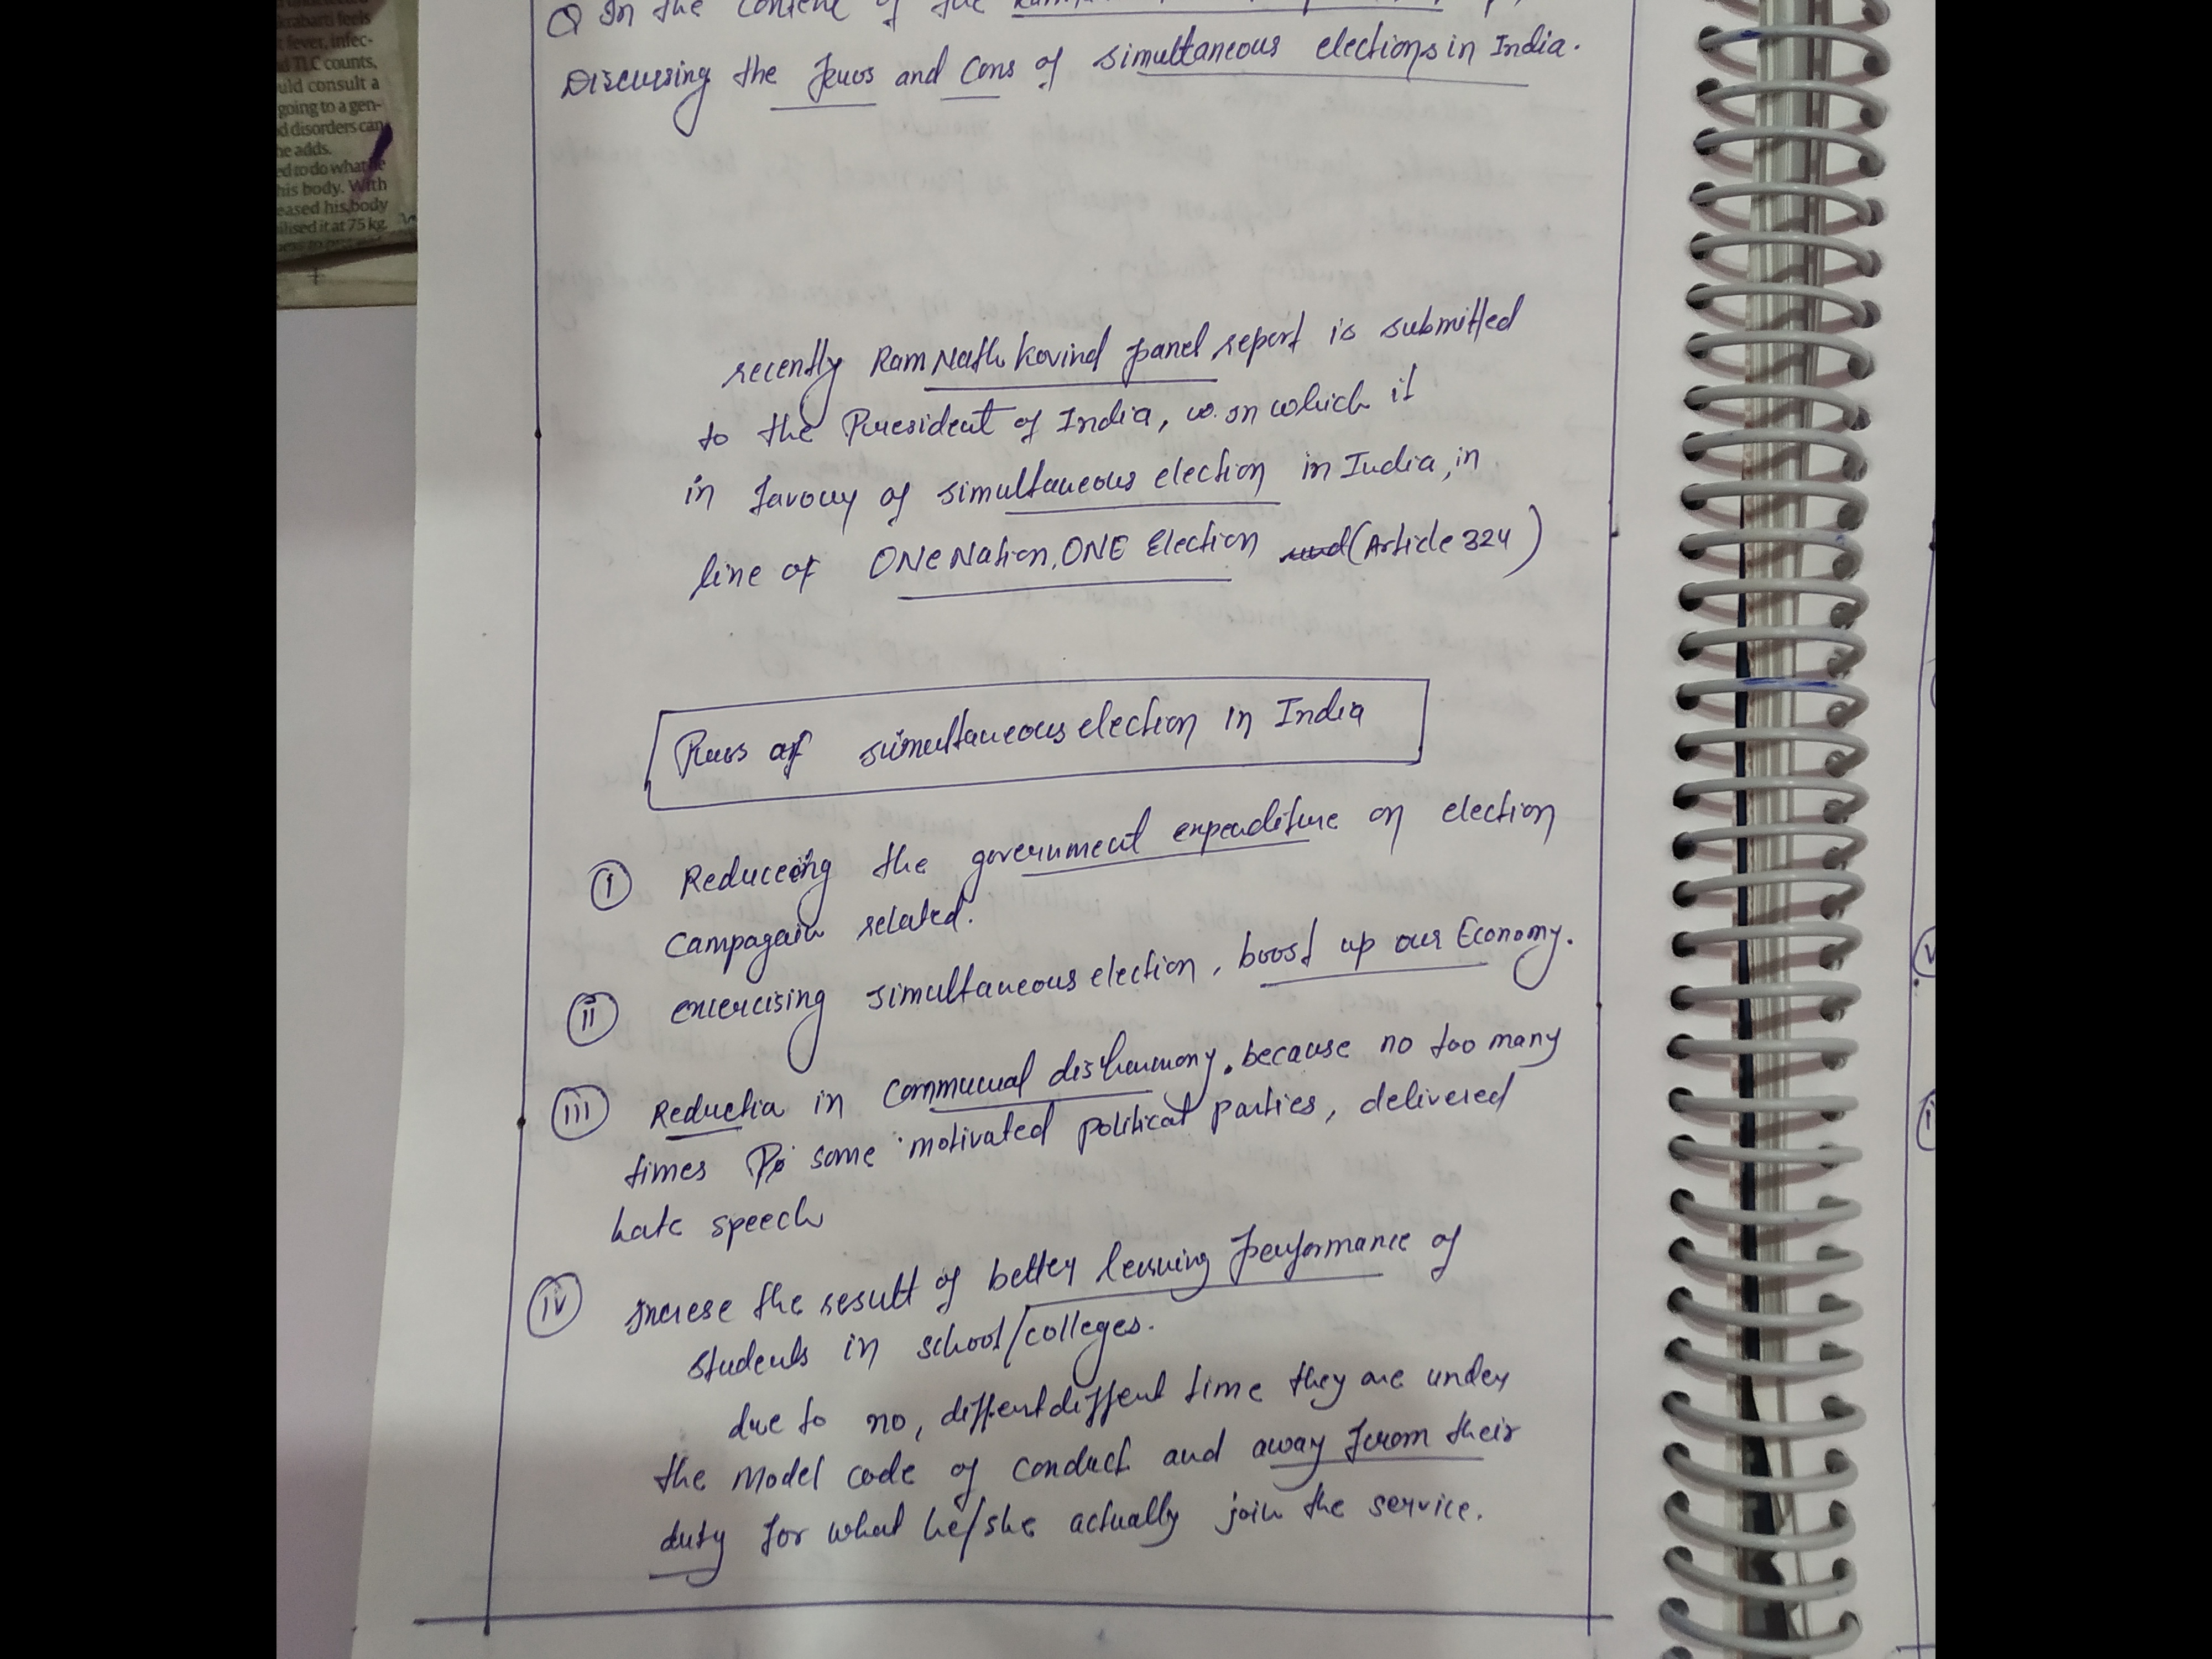 krabarti feels
t fever, infec-
d TLC counts,
uld consult a
going to a gen-
d disorders can
he adds.
ed to do what he
his body. With
eased his body
ilised it at 75 kg,
Q In the content of the
Discussing the Pros and Cons of simultaneous elections in India.
recently Ram Nath Kovind panel report is submitted
to the President of India, w. on which it
in favour of simultaneous election in India, in
line of ONe Nation, ONE Election (Article 324)
Pros of simultaneous election in India
(i) Reduceing the government expenditure on election
Campagain related.
(ii) exercising simultaneous election, boost up our Economy.
(iii) Reductia in Communal disharmony. because no too many
times Po some motivated political parties, delivered
hate speech
(iv) Increse the result of better learning performance of
students in school/colleges.
due to no, diffent diffent time they are under
the Model code of conduct and away from their
duty for what he/she actually join the service.